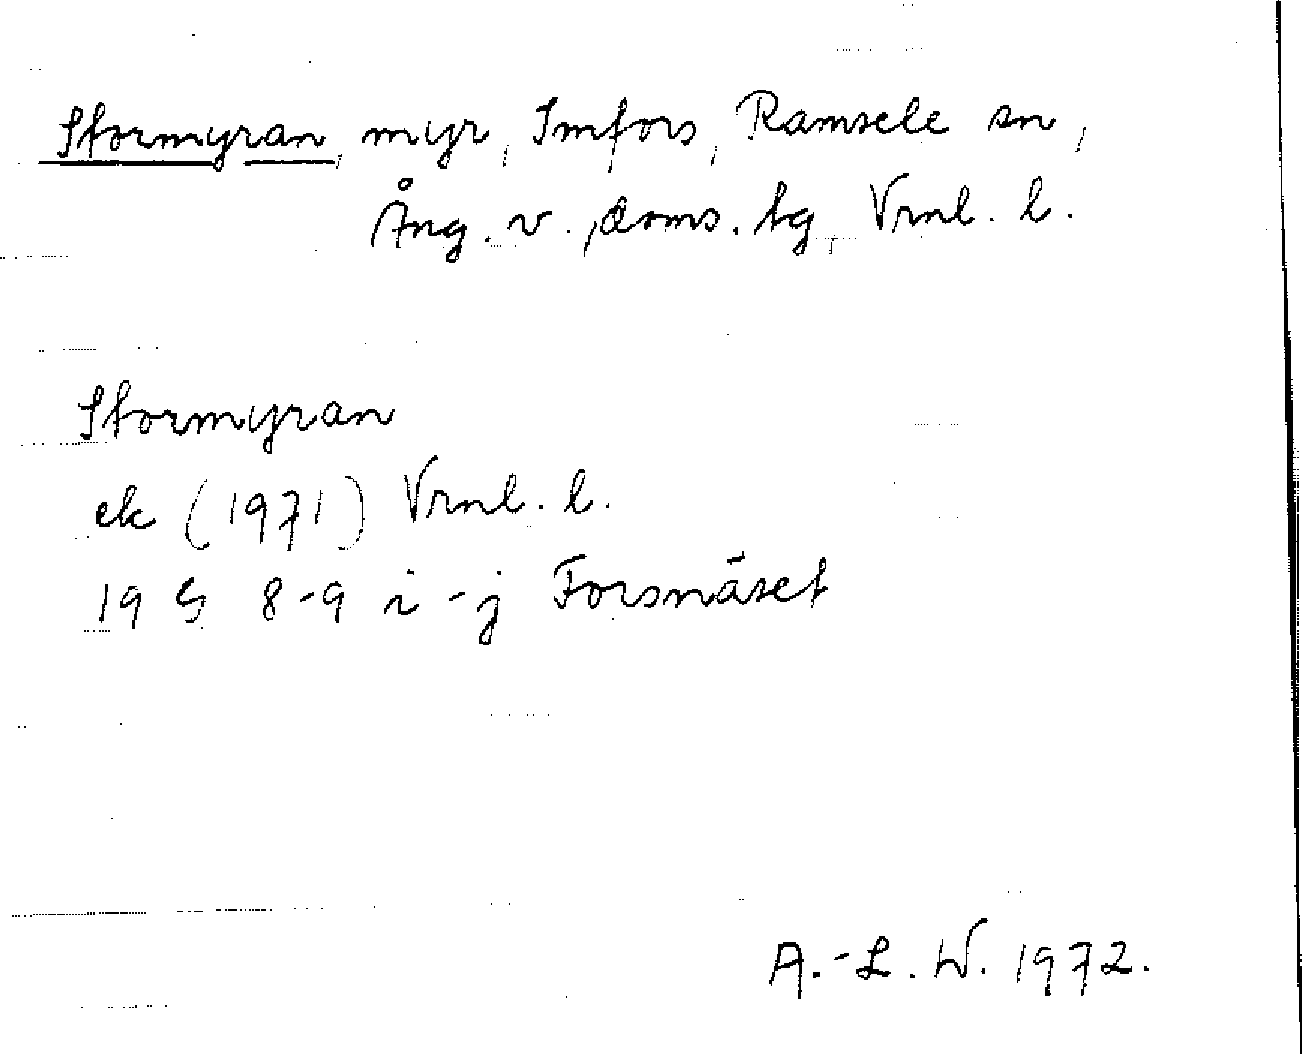 Stormyran, myr, Imfors, Ramsele sn,
Ång. v., doms. tg, Vrnl. l.
Stormyran
ek (1971) Vrnl. l.
19 G 8-9 i-j Forsnäset
A.-L. W. 1972.